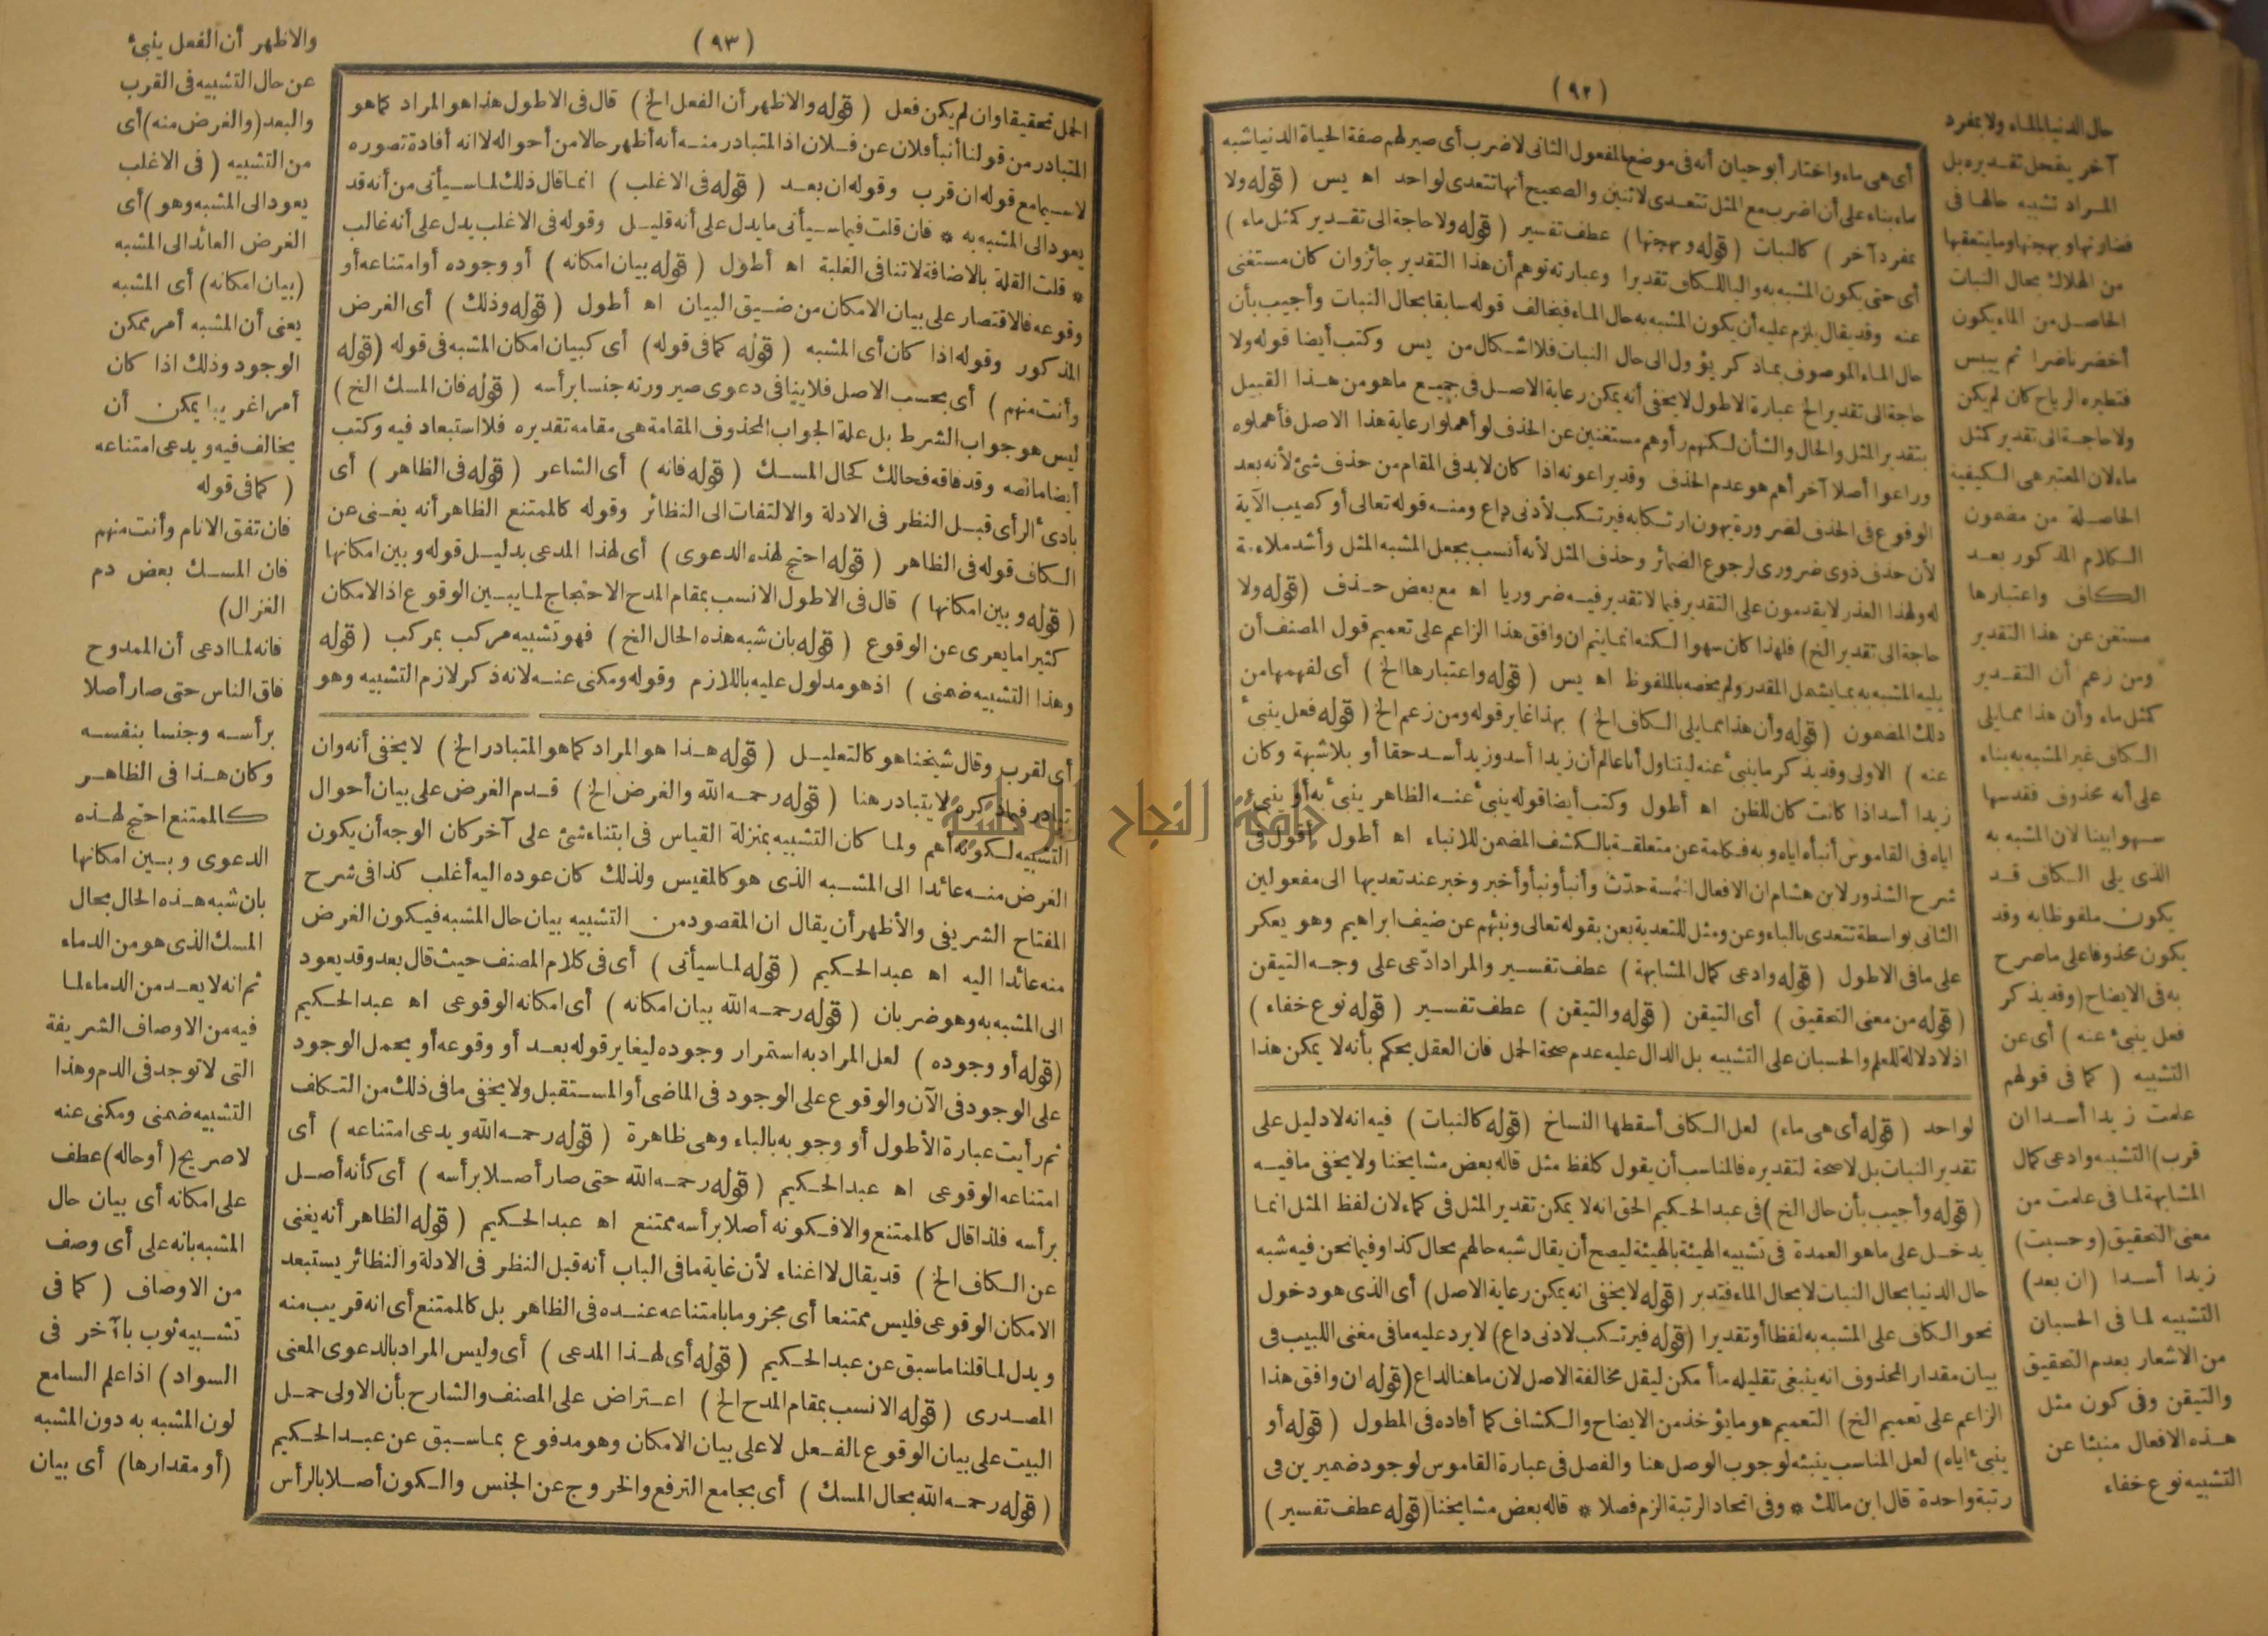 (٩٢)
حال الدنيا بالماء ولا بمفرد
آخر يتمحل تقديره بل
المراد تشبيه حالها فى
نضارتها وبهجتها وما يتعقبها
من الهلاك بحال النبات
الحاصل من الماء يكون
أخضر ناضرا ثم ييبس
فتطيره الرياح كان لم يكن
ولا حاجة الى تقدير كمثل
ماء لان المعتبر هى الكيفية
الحاصلة من مضمون
الكلام المذكور بعد
الكاف واعتبارها
مستغن عن هذا التقدير
ومن زعم أن التقدير
كمثل ماء وأن هذا مما يلى
الكاف غير المشبه به بناء
على أنه محذوف فقد سها
سهوا بينا لان المشبه به
الذى يلى الكاف قد
يكون ملفوظا به وقد
يكون محذوفا على ما صرح
به فى الايضاح (وقد يذكر
فعل ينبئ عنه) أى عن
التشبيه (كما فى قولهم
علمت زيدا أسدا ان
قرب) التشبيه وادعى كمال
المشابهة لما فى علمت من
معنى التحقيق (وحسبت)
زيدا أسدا (ان بعد)
التشبيه لما فى الحسبان
من الاشعار بعدم التحقيق
والتيقن وفى كون مثل
هذه الافعال منبئا عن
التشبيه نوع خفاء
أى هى ماء واختار أبو حيان أنه فى موضع المفعول الثانى لاضرب أى صير لهم صفة الحياة الدنيا شبه
ماء بناء على أن اضرب مع المثل تتعدى لاثنين والصحيح أنها تتعدى لواحد اه يس (قوله ولا
بمفرد آخر) كالنبات (قوله وبهجتها) عطف تفسير (قوله ولا حاجة الى تقدير كمثل ماء)
أى حتى يكون المشبه به واليا للكاف تقديرا وعبارته توهم أن هذا التقدير جائز وان كان مستغنى
عنه وقد يقال يلزم عليه أن يكون المشبه به حال الماء فيخالف قوله سابقا بحال النبات وأجيب بأن
حال الماء الموصوف بما ذكر يؤول الى حال النبات فلا اشكال من يس وكتب أيضا قوله ولا
حاجة الى تقدير الخ عبارة الاطول لا يخفى أنه يمكن رعاية الاصل فى جميع ما هو من هذا القبيل
بتقدير المثل والحال والشأن لكنهم رأوهم مستغنين عن الحذف لو أهملوا رعاية هذا الاصل فأهملوه
وراعوا أصلا آخر أهم هو عدم الحذف وقد يراعونه اذا كان لا بد فى المقام من حذف شئ لأنه بعد
الوقوع فى الحذف لضرورة يهون ارتكابه فيرتكب لأدنى داع ومنه قوله تعالى أو كصيب الآية
لأن حذف ذوى ضرورى لرجوع الضمائر وحذف المثل لأنه أنسب بجعل المشبه المثل وأشد ملاءمة
له ولهذا العذر لا يقدمون على التقدير فيما لا تقدير فيه ضروريا اه مع بعض حذف (قوله ولا
حاجة الى تقدير الخ) فلهذا كان سهوا لكنه انما يتم ان وافق هذا الزاعم على تعميم قول المصنف أن
يليه المشبه به بما يشمل المقدر ولم يخصه بالملفوظ اه يس (قوله واعتبارها الخ) أى لفهمها من
ذلك المضمون (قوله وأن هذا مما يلى الكاف الخ) بهذا غاير قوله ومن زعم الخ (قوله فعل ينبئ
عنه) الاولى وقد يذكر ما ينبئ عنه ليتناول أنا عالم أن زيدا أسد وزيد أسد حقا أو بلا شبهة وكان
زيدا أسد اذا كانت كان للظن اه أطول وكتب أيضا قوله ينبئ عنه الظاهر ينبئ به أو ينبئ
اياه فى القاموس أنبأه اياه وبه فكلمة عن متعلقة بالكشف المضمن للانباء اه أطول أقول فى
شرح الشذور لابن هشام ان الافعال الخمسة حدّث وأنبأ ونبأ وأخبر وخبر عند تعديها الى مفعولين
الثانى بواسطة تتعدى بالباء وعن ومثل للتعدية بعن بقوله تعالى ونبئهم عن ضيف ابراهيم وهو يعكر
على ما فى الاطول (قوله وادعى كمال المشابهة) عطف تفسير والمراد ادّعى على وجه التيقن
(قوله من معنى التحقيق) أى التيقن (قوله والتيقن) عطف تفسير (قوله نوع خفاء)
اذ لا دلالة للعلم والحسبان على التشبيه بل الدال عليه عدم صحة الحمل فان العقل يحكم بأنه لا يمكن هذا
لواحد (قوله أى هى ماء) لعل الكاف أسقطها النساخ (قوله كالنبات) فيه انه لا دليل على
تقدير النبات بل لا صحة لتقديره فالمناسب أن يقول كلفظ مثل قاله بعض مشايخنا ولا يخفى ما فيه
(قوله وأجيب بأن حال الخ) فى عبد الحكيم الحق انه لا يمكن تقدير المثل فى كماء لان لفظ المثل انما
يدخل على ما هو العمدة فى تشبيه الهيئة بالهيئة ليصح أن يقال شبه حالهم بحال كذا وفيما نحن فيه شبه
حال الدنيا بحال النبات لا بحال الماء فتدبر (قوله لا يخفى انه يمكن رعاية الاصل) أى الذى هو دخول
نحو الكاف على المشبه به لفظا أو تقديرا (قوله فيرتكب لادنى داع) لا يرد عليه ما فى مغنى اللبيب فى
بيان مقدار المحذوف انه ينبغى تقليله ما أمكن ليقل مخالفة الاصل لان ما هنا لداع (قوله ان وافق هذا
الزاعم على تعميم الخ) التعميم هو ما يؤخذ من الايضاح والكشاف كما أفاده فى المطول (قوله أو
ينبئ اياه) لعل المناسب ينبئه لوجوب الوصل هنا والفصل فى عبارة القاموس لوجود ضميرين فى
رتبة واحدة قال ابن مالك * وفى اتحاد الرتبة الزم فصلا * قاله بعض مشايخنا (قوله عطف تفسير)
(٩٣)
والاظهر أن الفعل ينبئ
عن حال التشبيه فى القرب
والبعد (والغرض منه) أى
من التشبيه (فى الاغلب
يعود الى المشبه وهو) أى
الغرض العائد الى المشبه
(بيان امكانه) أى المشبه
يعنى أن المشبه أمر ممكن
الوجود وذلك اذا كان
أمرا غريبا يمكن أن
يخالف فيه ويدعى امتناعه
(كما فى قوله
فان تفق الانام وأنت منهم
فان المسك بعض دم
الغزال)
فانه لما ادعى أن الممدوح
فاق الناس حتى صار أصلا
برأسه وجنسا بنفسه
وكان هذا فى الظاهر
كالممتنع احتج لهذه
الدعوى وبين امكانها
بان شبه هذه الحال بحال
المسك الذى هو من الدماء
ثم انه لا يعد من الدماء لما
فيه من الاوصاف الشريفة
التى لا توجد فى الدم وهذا
التشبيه ضمنى ومكنى عنه
لا صريح (أو حاله) عطف
على امكانه أى بيان حال
المشبه بانه على أى وصف
من الاوصاف (كما فى
تشبيه ثوب بآخر فى
السواد) اذا علم السامع
لون المشبه به دون المشبه
(أو مقدارها) أى بيان
الحمل تحقيقا وان لم يكن فعل (قوله والاظهر أن الفعل الخ) قال فى الاطول هذا هو المراد كما هو
المتبادر من قولنا أنبأ فلان عن فلان اذ المتبادر منه أنه أظهر حالا من أحواله لا انه أفادة تصوره
لا سيما مع قوله ان قرب وقوله ان بعد (قوله فى الاغلب) انما قال ذلك لما سيأتى من أنه قد
يعود الى المشبه به * فان قلت فيما سيأتى ما يدل على أنه قليل وقوله فى الاغلب يدل على أنه غالب
* قلت القلة بالاضافة لا تنافى الغلبة اه أطول (قوله بيان امكانه) أو وجوده أو امتناعه أو
وقوعه فالاقتصار على بيان الامكان من ضيق البيان اه أطول (قوله وذلك) أى الغرض
المذكور وقوله اذا كان أى المشبه (قوله كما فى قوله) أى كبيان امكان المشبه فى قوله (قوله
وأنت منهم) أى بحسب الاصل فلا ينافى دعوى صيرورته جنسا برأسه (قوله فان المسك الخ)
ليس هو جواب الشرط بل علة الجواب المحذوف المقامة هى مقامه تقديره فلا استبعاد فيه وكتب
أيضا ما نصه وقد فاقه فحالك كحال المسك (قوله فانه) أى الشاعر (قوله فى الظاهر) أى
بادئ الرأى قبل النظر فى الادلة والالتفات الى النظائر وقوله كالممتنع الظاهر أنه يغنى عن
الكاف قوله فى الظاهر (قوله احتج لهذه الدعوى) أى لهذا المدعى بدليل قوله وبين امكانها
(قوله وبين امكانها) قال فى الاطول الانسب بمقام المدح الاحتجاج لما يبين الوقوع اذ الامكان
كثيرا ما يعرى عن الوقوع (قوله بان شبه هذه الحال الخ) فهو تشبيه مركب بمركب (قوله
وهذا التشبيه ضمنى) اذ هو مدلول عليه باللازم وقوله ومكنى عنه لانه ذكر لازم التشبيه وهو
أى لقرب وقال شيخنا هو كالتعليل (قوله هذا هو المراد كما هو المتبادر الخ) لا يخفى أنه وان
تبادر فيما ذكره لا يتبادر هنا (قوله رحمه الله والغرض الخ) قدم الغرض على بيان أحوال
التشبيه لكونه أهم ولما كان التشبيه بمنزلة القياس فى ابتناء شئ على آخر كان الوجه أن يكون
الغرض منه عائدا الى المشبه الذى هو كالمقيس ولذلك كان عوده اليه أغلب كذا فى شرح
المفتاح الشريفى والأظهر أن يقال ان المقصود من التشبيه بيان حال المشبه فيكون الغرض
منه عائدا اليه اه عبد الحكيم (قوله لما سيأتى) أى فى كلام المصنف حيث قال بعد وقد يعود
الى المشبه به وهو ضربان (قوله رحمه الله بيان امكانه) أى امكانه الوقوعى اه عبد الحكيم
(قوله أو وجوده) لعل المراد به استمرار وجوده ليغاير قوله بعد أو وقوعه أو يحمل الوجود
على الوجود فى الآن والوقوع على الوجود فى الماضى أو المستقبل ولا يخفى ما فى ذلك من التكلف
ثم رأيت عبارة الأطول أو وجوبه بالباء وهى ظاهرة (قوله رحمه الله ويدعى امتناعه) أى
امتناعه الوقوعى اه عبد الحكيم (قوله رحمه الله حتى صار أصلا برأسه) أى كأنه أصل
برأسه فلذا قال كالممتنع والا فكونه أصلا برأسه ممتنع اه عبد الحكيم (قوله الظاهر أنه يغنى
عن الكاف الخ) قد يقال لا اغناء لأن غاية ما فى الباب أنه قبل النظر فى الادلة والنظائر يستبعد
الامكان الوقوعى فليس ممتنعا أى مجزوما بامتناعه عنده فى الظاهر بل كالممتنع أى انه قريب منه
ويدل لما قلنا ما سبق عن عبد الحكيم (قوله أى لهذا المدعى) أى وليس المراد بالدعوى المعنى
المصدرى (قوله الانسب بمقام المدح الخ) اعتراض على المصنف والشارح بأن الاولى حمل
البيت على بيان الوقوع بالفعل لا على بيان الامكان وهو مدفوع بما سبق عن عبد الحكيم
(قوله رحمه الله بحال المسك) أى بجامع الترفع والخروج عن الجنس والكون أصلا بالرأس
جامعة النجاح الوطنية